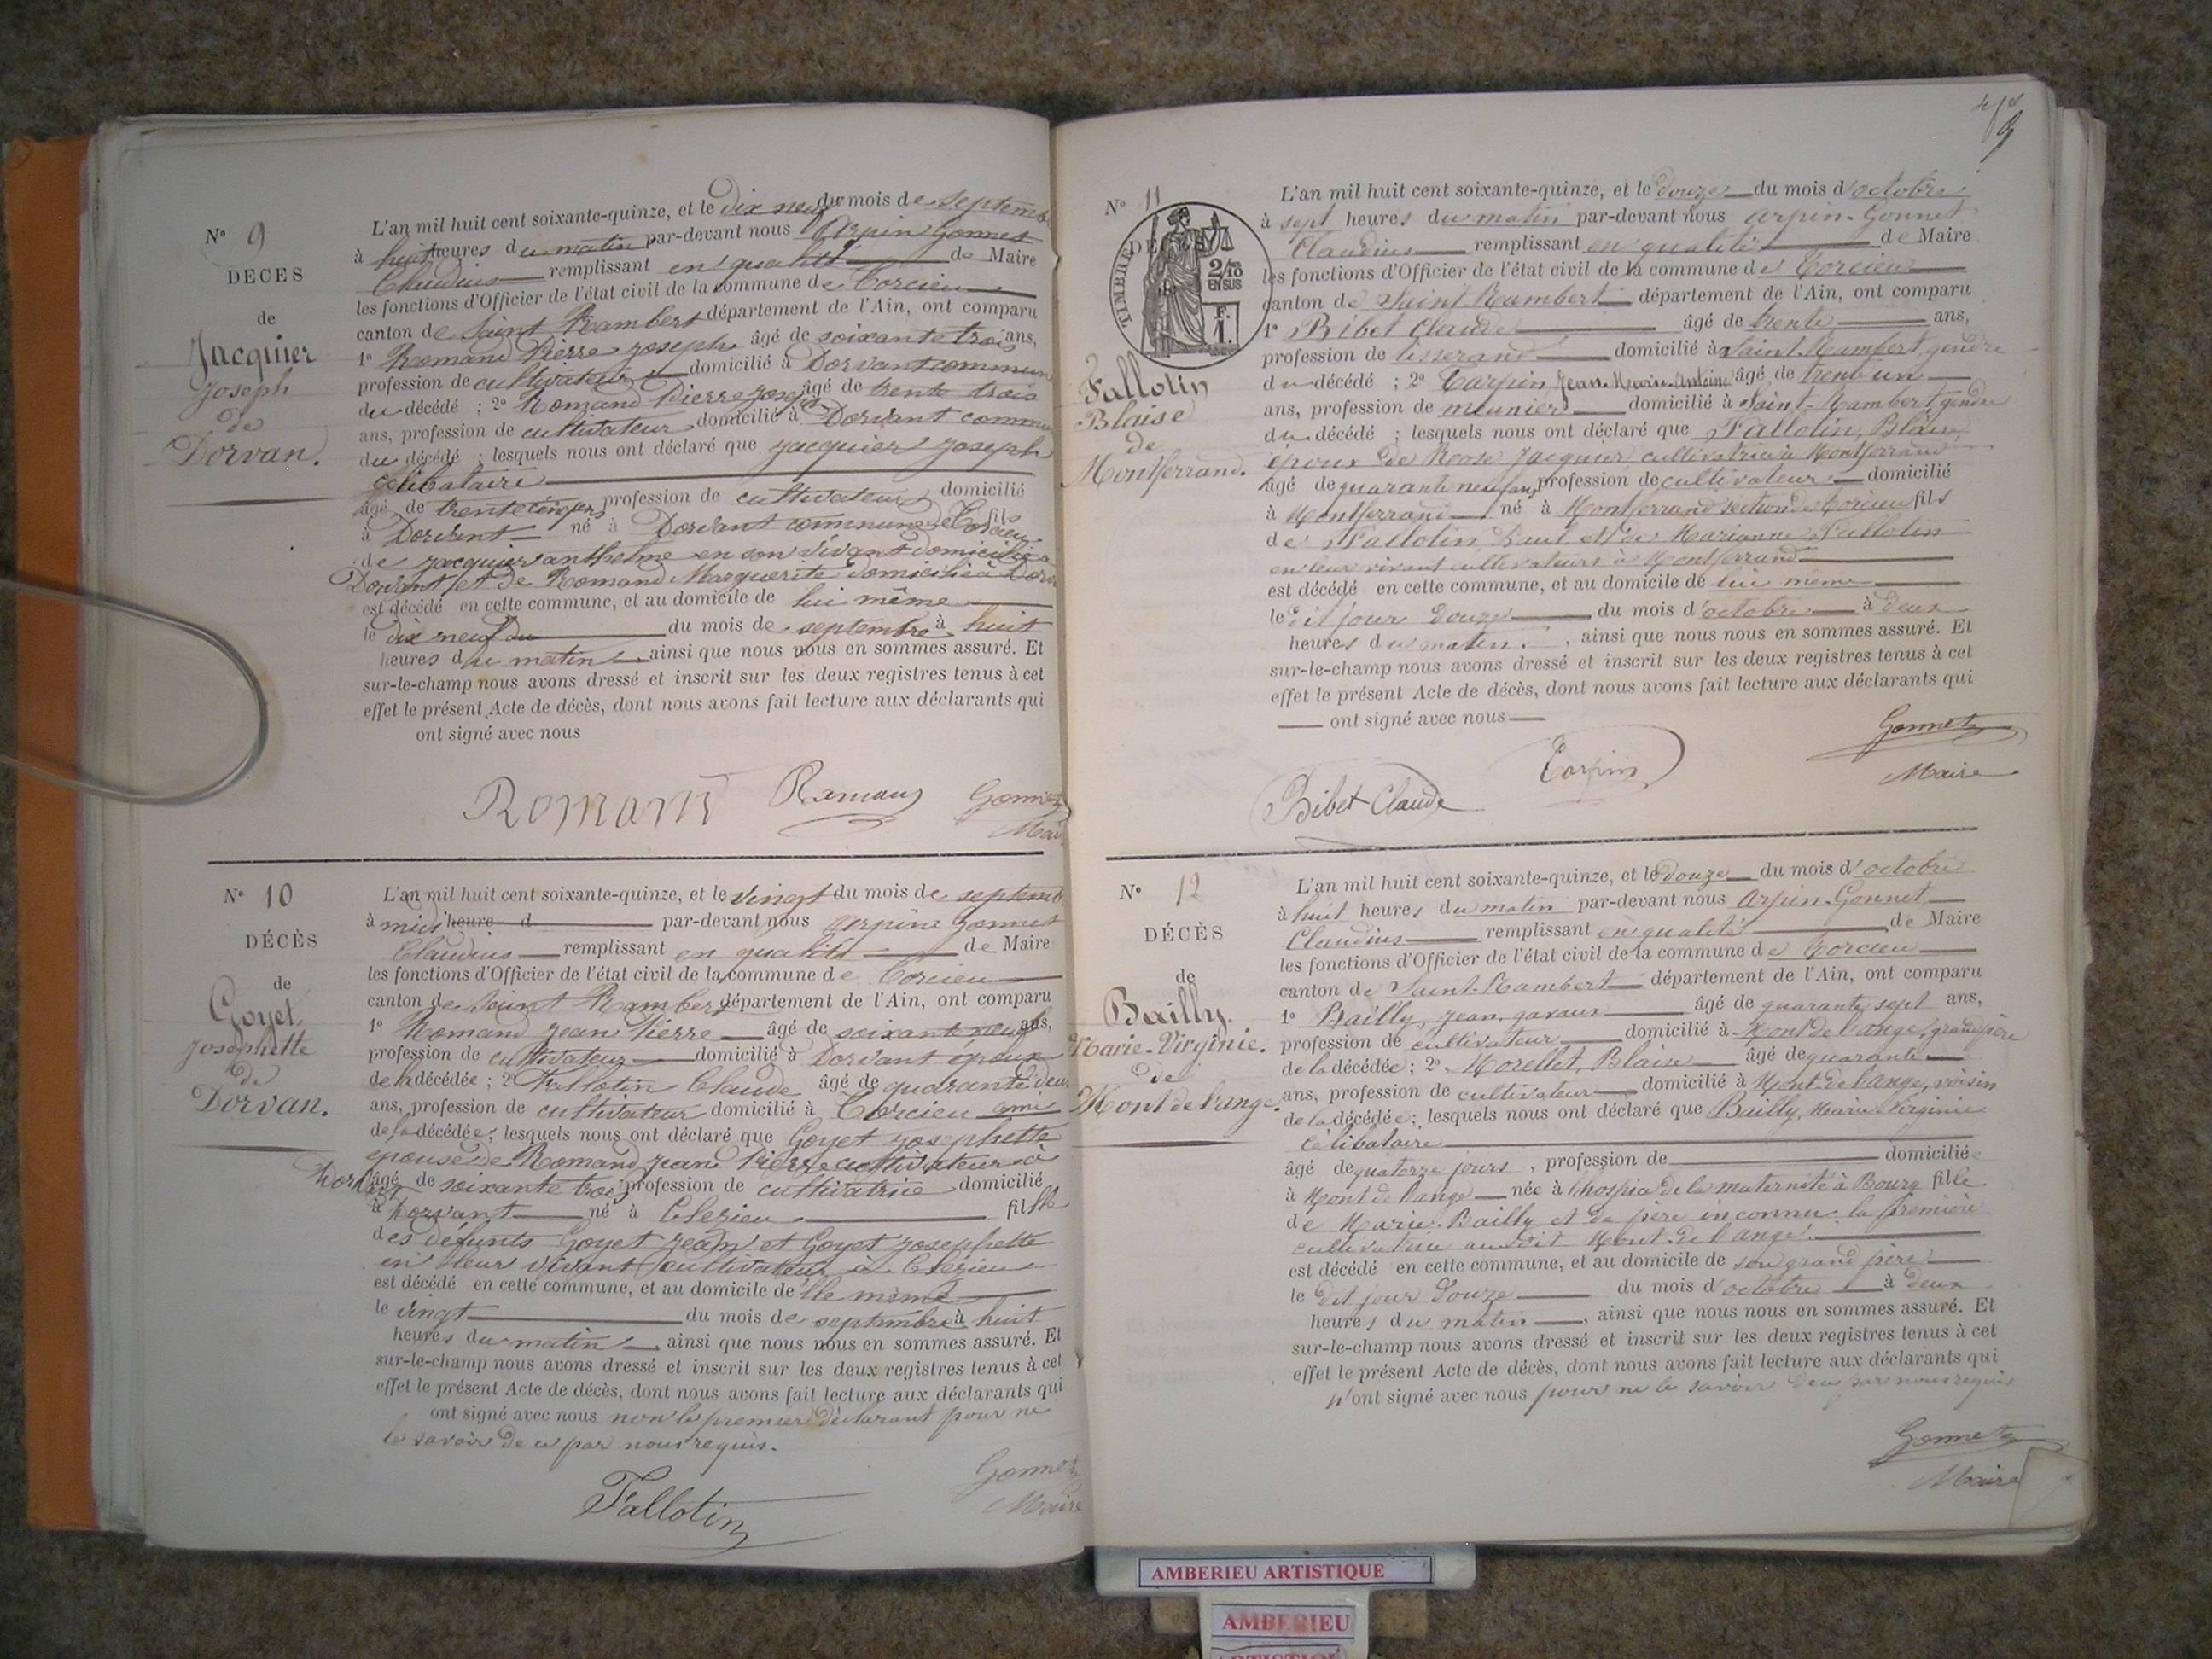 N° 9
DECES
de
Jacquier
Joseph
de
Dorvan.
L'an mil huit cent soixante-quinze, et le dix neuf du mois de septemb
à huit heures du matin par-devant nous Arpin Gonnet
Claudius remplissant en qualité de Maire
les fonctions d'Officier de l'état civil de la commune de Torcieu
canton de Saint Rambert département de l'Ain, ont comparu
1° Romand Pierre Joseph âgé de soixante trois ans,
profession de cultivateur domicilié à Dorvant commun
du décédé ; 2° Romand Pierre Joseph âgé de trente trois
ans, profession de cultivateur domicilié à Dorvant commu
du décédé ; lesquels nous ont déclaré que Jacquier Joseph
célibataire
âgé de trente cinq ans profession de cultivateur domicilié
à Dorvant né à Dorvant commune de Torcieu fils
de Jacquier anthelme en son vivant domicilié à
Dorvant et de Romand Marguerite domiciliée à Dorv
est décédé en cette commune, et au domicile de lui même
le dix neuf du du mois de septembre à huit
heures du matin ainsi que nous nous en sommes assuré. Et
sur-le-champ nous avons dressé et inscrit sur les deux registres tenus à cet
effet le présent Acte de décès, dont nous avons fait lecture aux déclarants qui
ont signé avec nous
Romand Romand Gonnet
Mai
N° 10
DÉCÈS
de
Goyet
Josephette
de
Dorvan.
L'an mil huit cent soixante-quinze, et le vingt du mois de septemb
à midi heure d par-devant nous arpin Gonnet
Claudius remplissant en qualité de Maire
les fonctions d'Officier de l'état civil de la commune de Torcieu
canton de Saint Rambert département de l'Ain, ont comparu
1° Romand Jean Pierre âgé de soixante neuf ans,
profession de cultivateur domicilié à Dorvant époux
de la décédée ; 2° Fallotin Claude âgé de quarante deux
ans, profession de cultivateur domicilié à Torcieu ami
de la décédée ; lesquels nous ont déclaré que Goyet Josephette
épouse de Romand Jean Pierre cultivateur à
Dorvant âgé de soixante trois profession de cultivatrice domicilié
à Dorvant né à Clezieu fille
des défunts Goyet Jean et Goyet Josephette
en leur vivant cultivateurs à Clézieu
est décédé en cette commune, et au domicile de elle même
le vingt du mois de septembre à huit
heures du matin ainsi que nous nous en sommes assuré. Et
sur-le-champ nous avons dressé et inscrit sur les deux registres tenus à cet
effet le présent Acte de décès, dont nous avons fait lecture aux déclarants qui
ont signé avec nous non le premier déclarant pour ne
le savoir de ce par nous requis.
Fallotin
Gonnet
Maire
9
N° 11
DECES
TIMBRE
2/10
EN SUS
F.
1.
Fallotin
Blaise
de
Montferrand.
L'an mil huit cent soixante-quinze, et le douze du mois d'octobre
à sept heures du matin par-devant nous Arpin-Gonnet
Claudius remplissant en qualité de Maire
les fonctions d'Officier de l'état civil de la commune de Torcieu
canton de Saint Rambert département de l'Ain, ont comparu
1° Bibet Claude âgé de trente ans,
profession de tisserand domicilié à Saint-Rambert, gendre
du décédé ; 2° Tarpin Jean-Marie-Antoine âgé de trente un
ans, profession de meunier domicilié à Saint-Rambert, gendre
du décédé ; lesquels nous ont déclaré que Fallotin, Blaise
époux de Roose Jacquier cultivatrice à Montferrand
âgé de quarante neuf ans, profession de cultivateur domicilié
à Montferrand né à Montferrand section de Torcieu fils
de Fallotin et de Marianne Fallotin
en leur vivant cultivateurs à Montferrand
est décédé en cette commune, et au domicile de lui même
le dit jour douze du mois d'octobre à deux
heures du matin. , ainsi que nous nous en sommes assuré. Et
sur-le-champ nous avons dressé et inscrit sur les deux registres tenus à cet
effet le présent Acte de décès, dont nous avons fait lecture aux déclarants qui
ont signé avec nous
Bibet Claude Tarpin Gonnet
Maire
N° 12
DÉCÈS
de
Bailly.
Marie-Virginie.
de
Mont de l'ange.
L'an mil huit cent soixante-quinze, et le douze du mois d'octobre
à huit heures du matin par-devant nous Arpin-Gonnet
Claudius remplissant en qualité de Maire
les fonctions d'Officier de l'état civil de la commune de Torcieu
canton de Saint-Rambert département de l'Ain, ont comparu
1° Bailly, Jean âgé de quarante sept ans,
profession de cultivateur domicilié à Mont de l'ange, grand père
de la décédée ; 2° Morellet, Blaise âgé de quarante
ans, profession de cultivateur domicilié à Mont-de l'ange, voisin
de la décédée ; lesquels nous ont déclaré que Bailly, Marie Virginie
célibataire
âgé de quatorze jours , profession de domiciliée
à Mont de l'ange née à l'hospice de la maternité à Bourg fille
de Marie Bailly et de père inconnu la première
cultivatrice au dit Mont-de l'ange.
est décédé en cette commune, et au domicile de son grand père
le dit jour douze du mois d'octobre à deux
heures du matin , ainsi que nous nous en sommes assuré. Et
sur-le-champ nous avons dressé et inscrit sur les deux registres tenus à cet
effet le présent Acte de décès, dont nous avons fait lecture aux déclarants qui
n'ont signé avec nous pour ne le savoir de ce par nous requis
Gonnet
Maire
AMBERIEU ARTISTIQUE
AMBERIEU
ARTISTIQUE